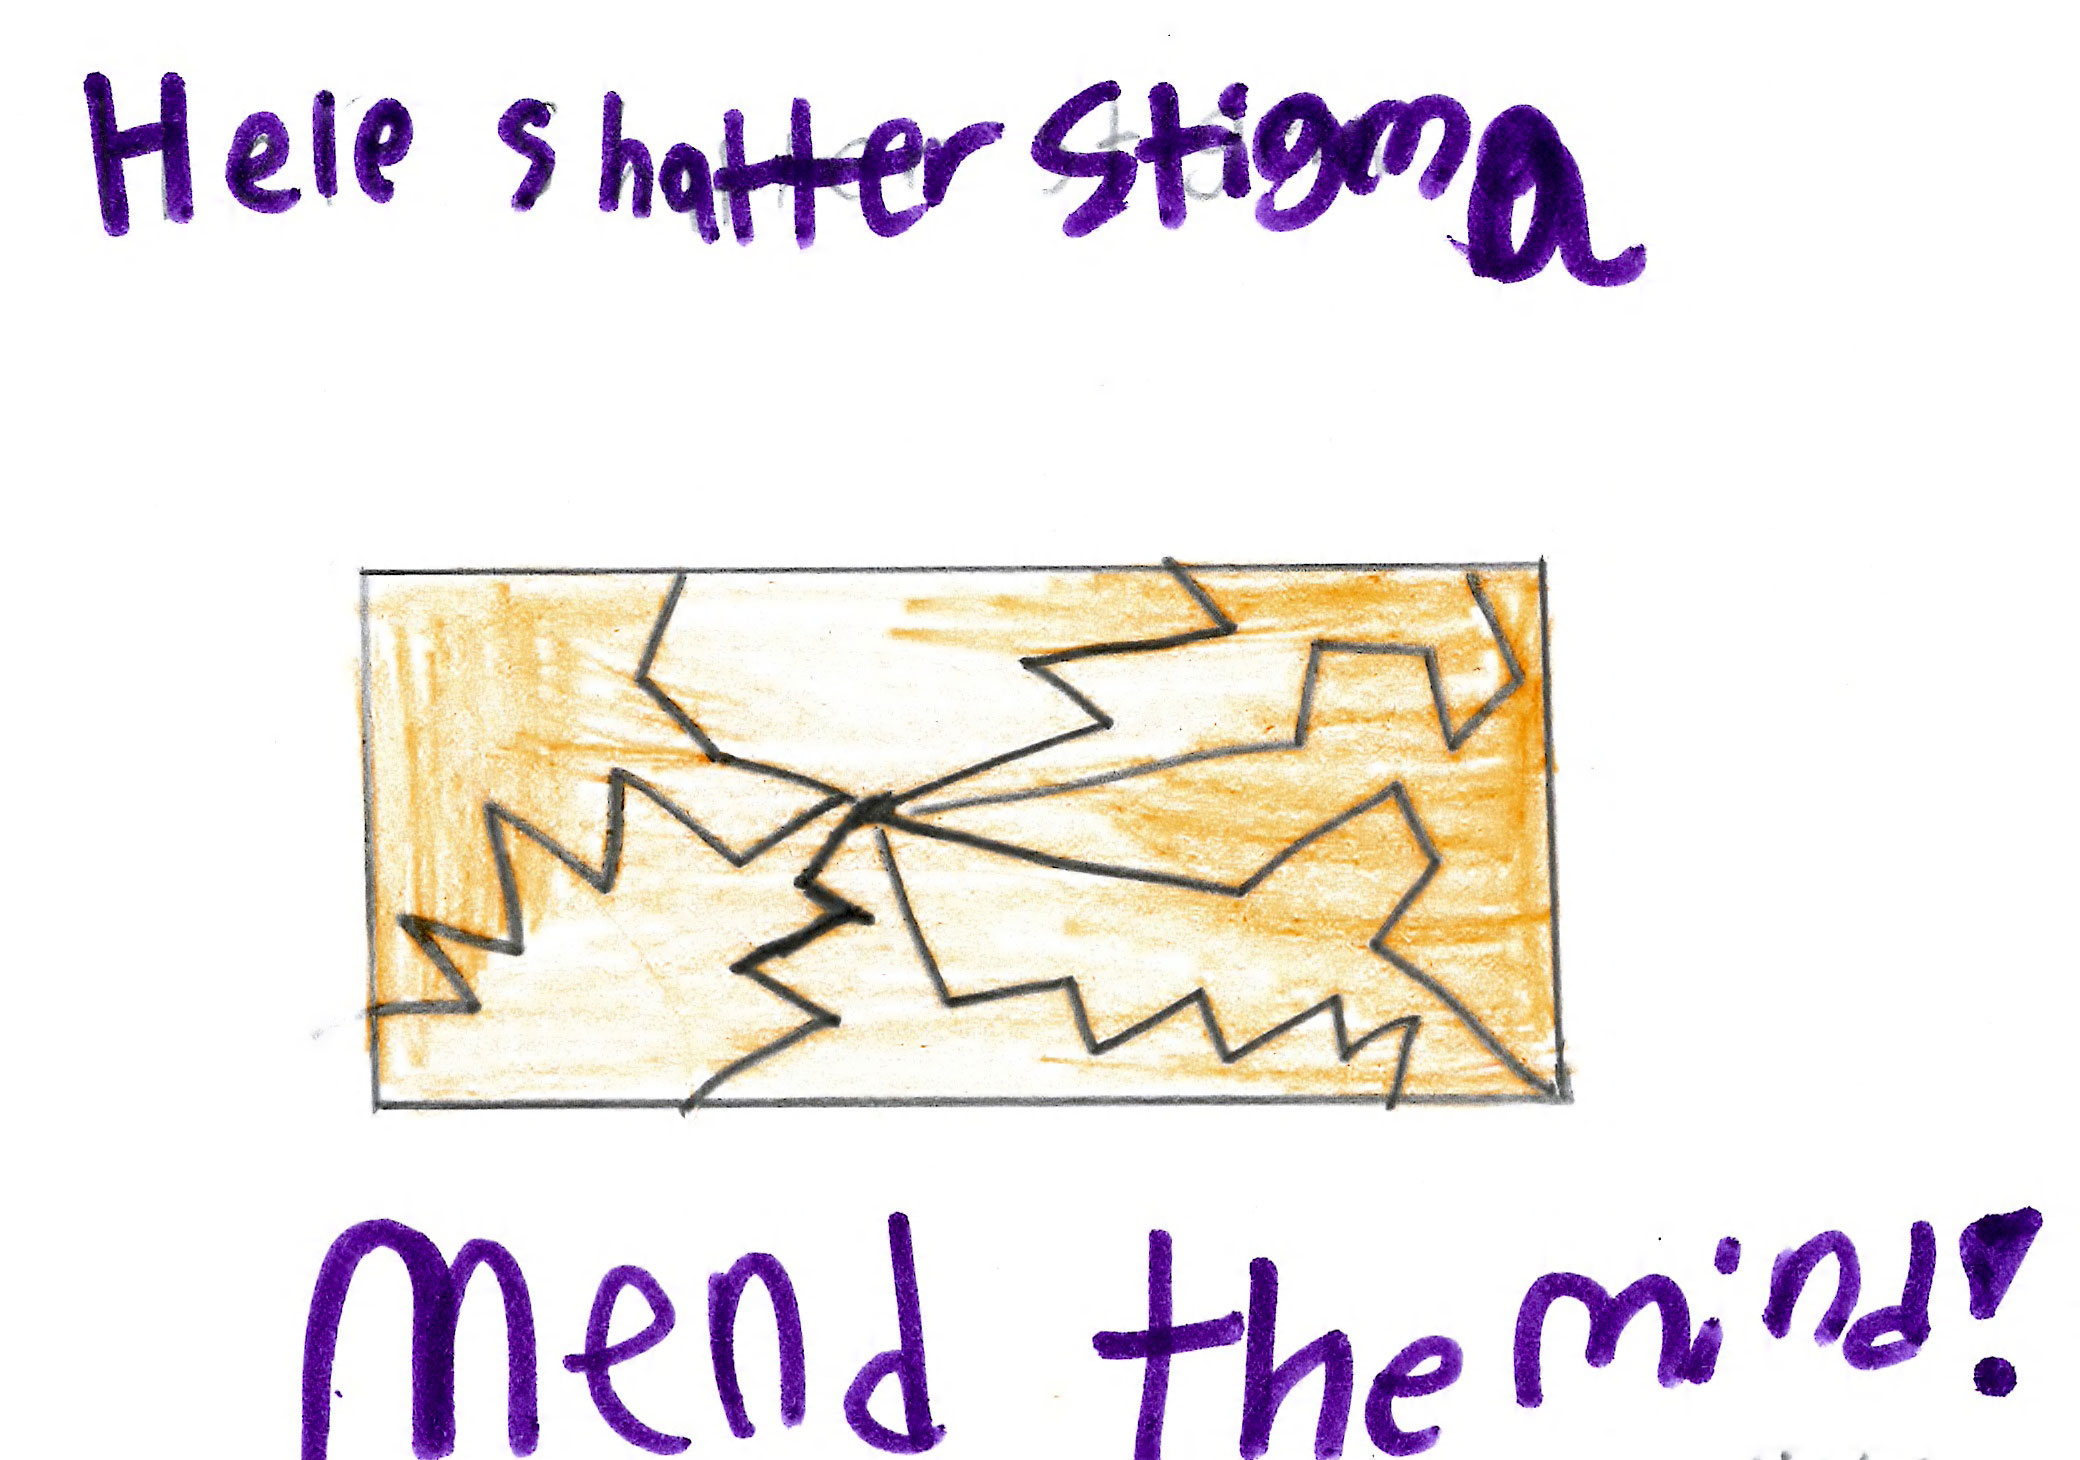 Hele shatter Stigma
Mend the mind!